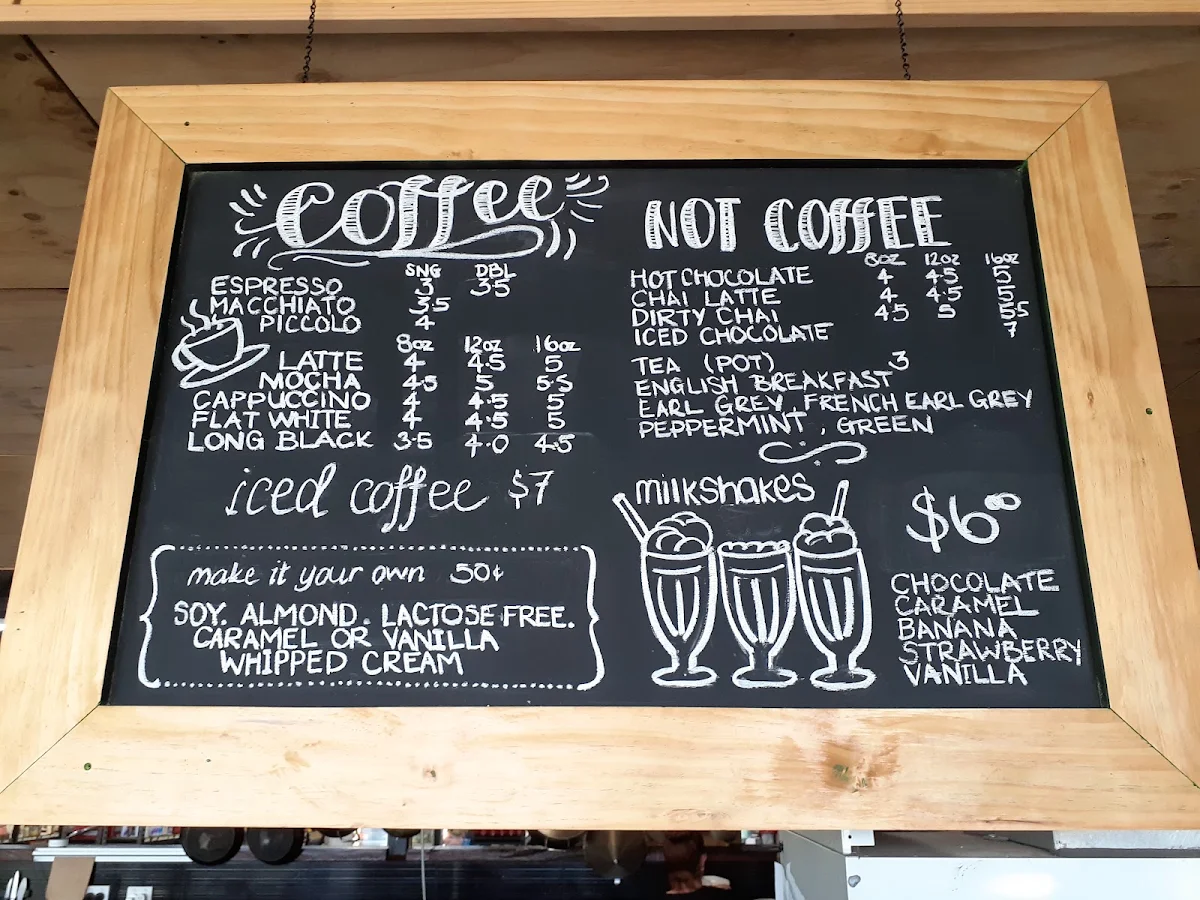 Coffee
SNG DBL
ESPRESSO 3 3.5
MACCHIATO 3.5
PICCOLO 4
8oz 12oz 16oz
LATTE 4 4.5 5
MOCHA 4.5 5 5.5
CAPPUCCINO 4 4.5 5
FLAT WHITE 4 4.5 5
LONG BLACK 3.5 4.0 4.5
iced coffee $7
make it your own 50¢
SOY. ALMOND. LACTOSE FREE.
CARAMEL OR VANILLA
WHIPPED CREAM
NOT COFFEE
8oz 12oz 16oz
HOT CHOCOLATE 4 4.5 5
CHAI LATTE 4 4.5 5
DIRTY CHAI 4.5 5 5.5
ICED CHOCOLATE 7
TEA (POT) 3
ENGLISH BREAKFAST
EARL GREY, FRENCH EARL GREY
PEPPERMINT, GREEN
milkshakes
$6.00
CHOCOLATE
CARAMEL
BANANA
STRAWBERRY
VANILLA